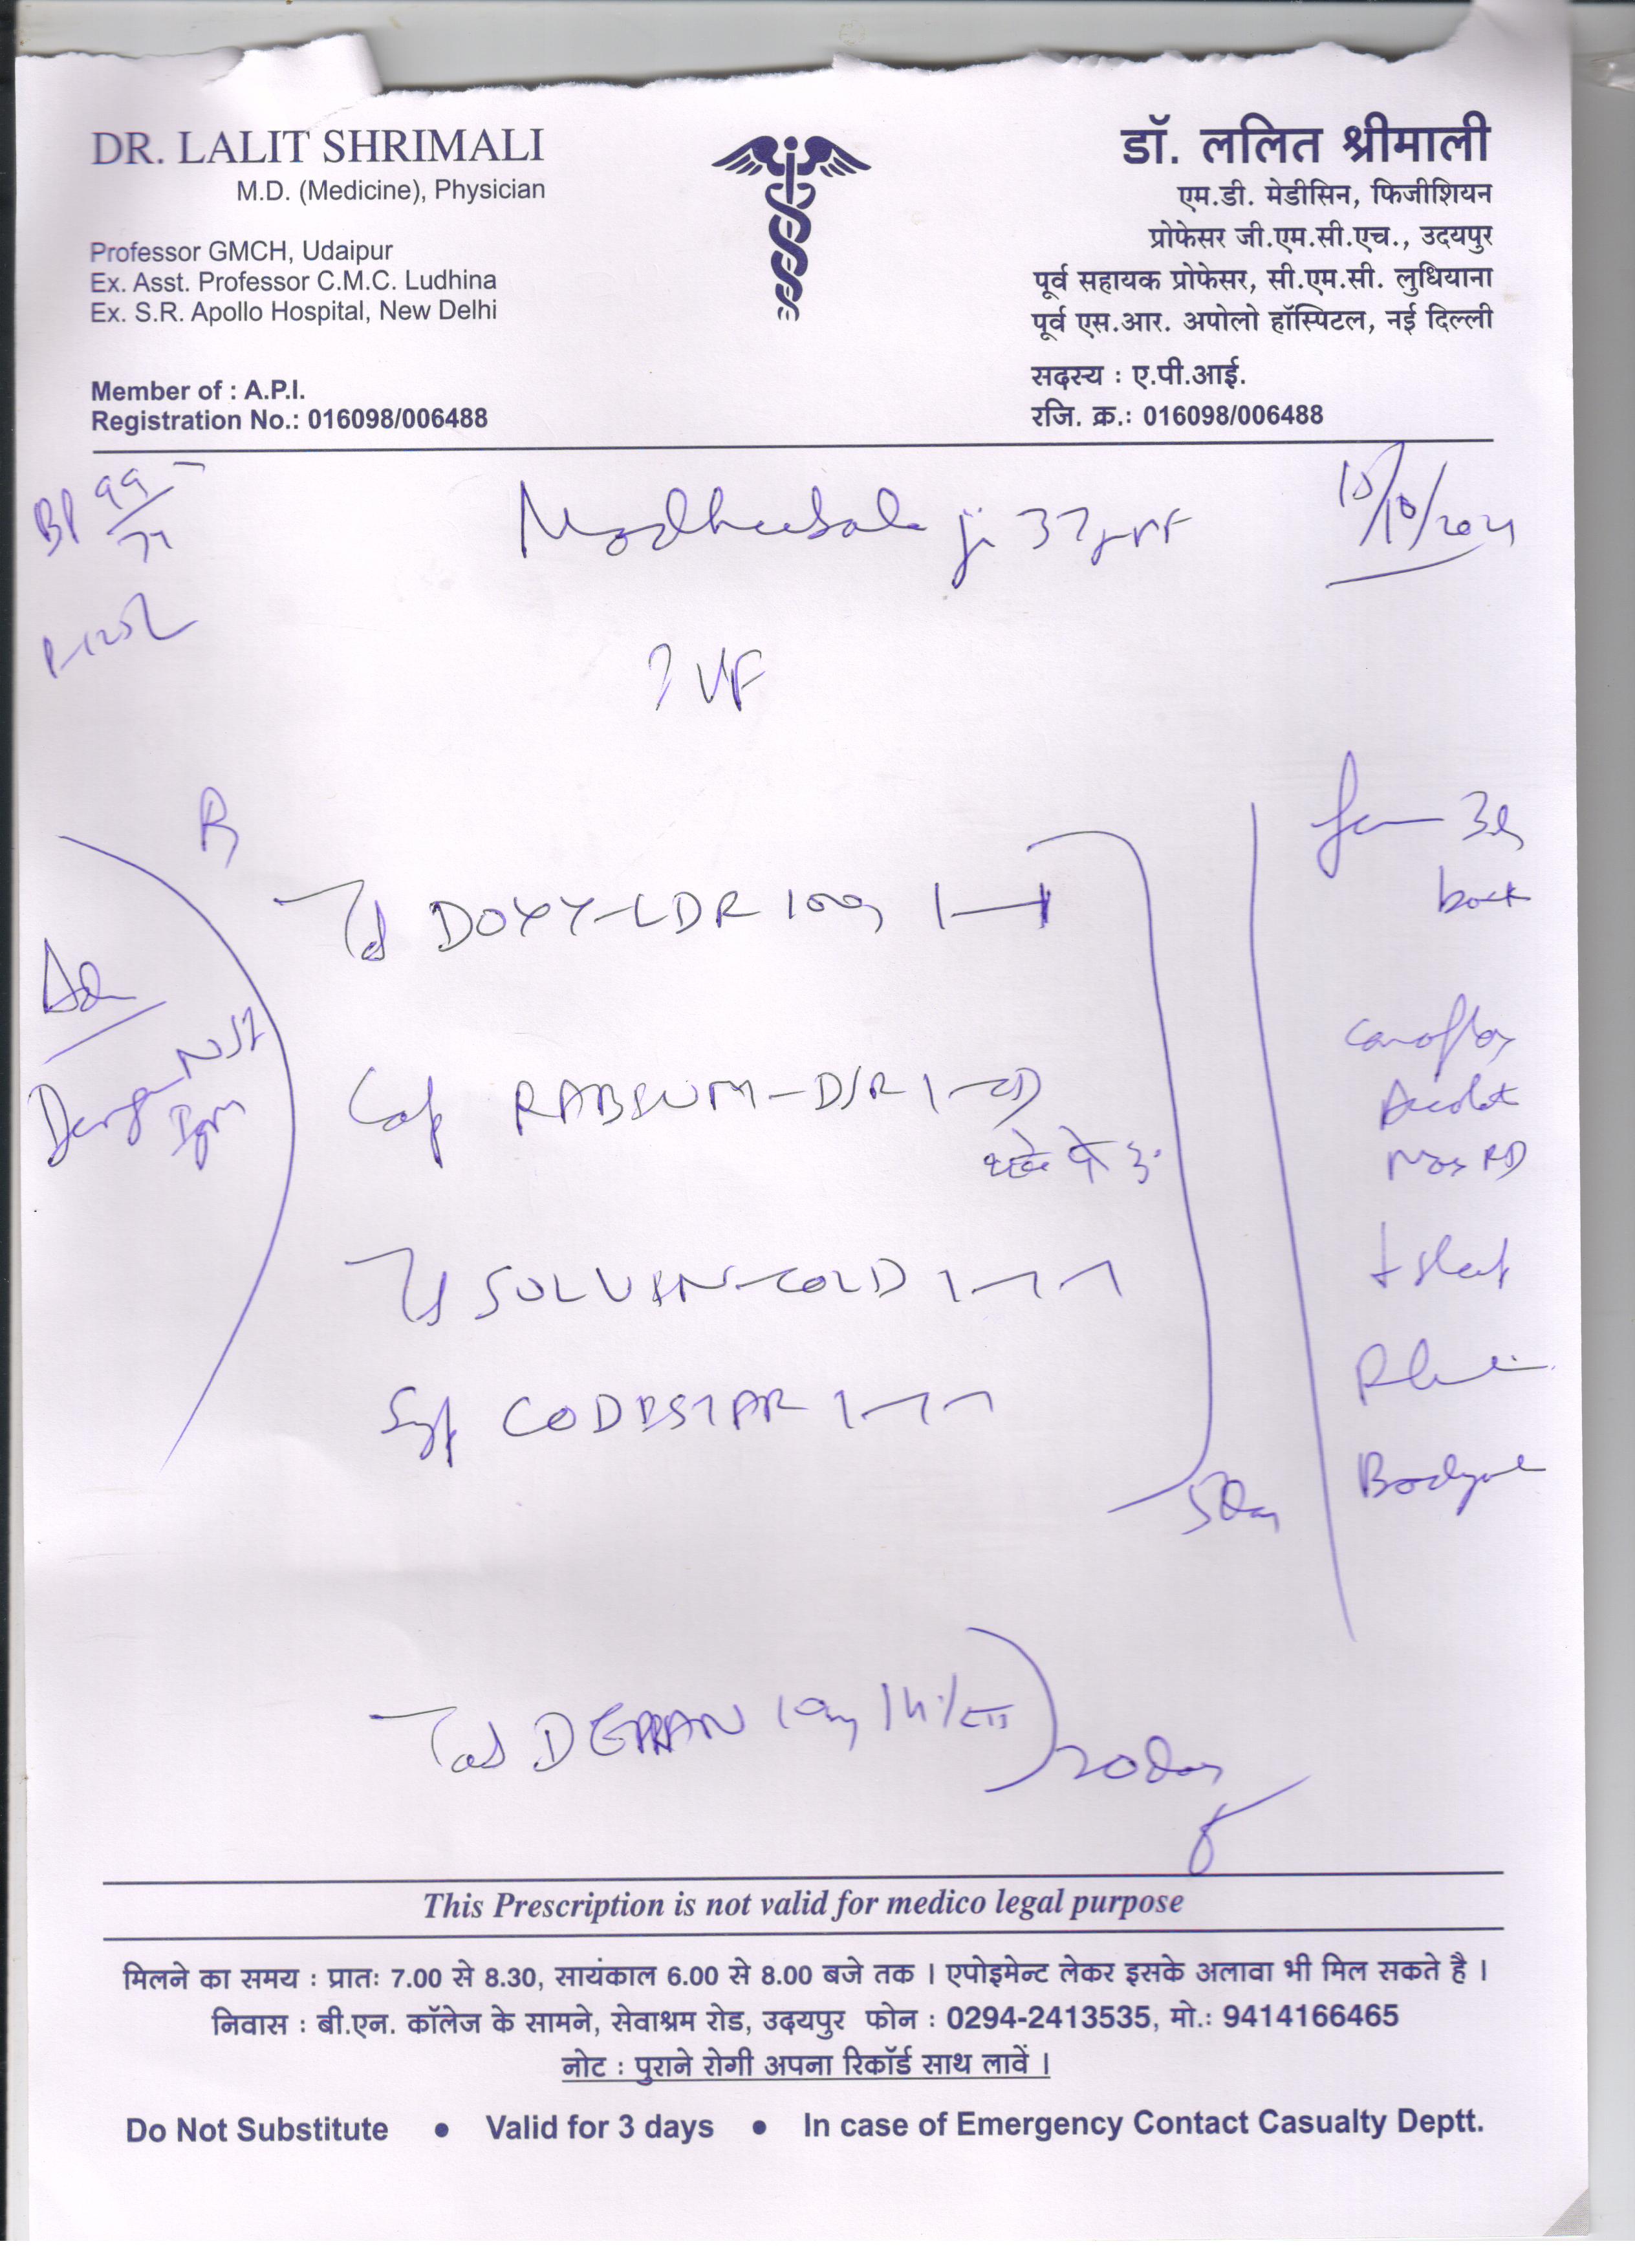 DR. LALIT SHRIMALI
M.D. (Medicine), Physician
Professor GMCH, Udaipur
Ex. Asst. Professor C.M.C. Ludhina
Ex. S.R. Apollo Hospital, New Delhi
Member of : A.P.I.
Registration No.: 016098/006488
डॉ. ललित श्रीमाली
एम.डी. मेडीसिन, फिजीशियन
प्रोफेसर जी.एम.सी.एच., उदयपुर
पूर्व सहायक प्रोफेसर, सी.एम.सी. लुधियाना
पूर्व एस.आर. अपोलो हॉस्पिटल, नई दिल्ली
सदस्य : ए.पी.आई.
रजि. क्र.: 016098/006488
BP 99
Madhubala ji 37
? VF
DOXY-LDR 100mg 1—1
Cap RABIUM-DSR 1-OD
SOLVIN-COLD 1-1-1
Syp CODISTAR 1-1-1
5 day
Dengue NS1
IgM
Tab DEPRAN 10mg
20 day
This Prescription is not valid for medico legal purpose
मिलने का समय : प्रातः 7.00 से 8.30, सायंकाल 6.00 से 8.00 बजे तक । एपोइमेन्ट लेकर इसके अलावा भी मिल सकते है ।
निवास : बी.एन. कॉलेज के सामने, सेवाश्रम रोड, उदयपुर फोन : 0294-2413535, मो.: 9414166465
नोट : पुराने रोगी अपना रिकॉर्ड साथ लावें ।
Do Not Substitute • Valid for 3 days • In case of Emergency Contact Casualty Deptt.